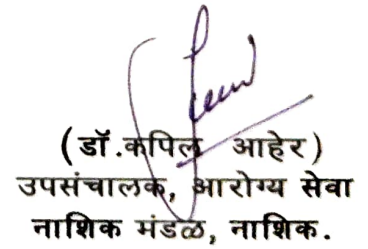 (डॉ.कपिल आहेर)
उपसंचालक, आरोग्य सेवा
नाशिक मंडळ, नाशिक.